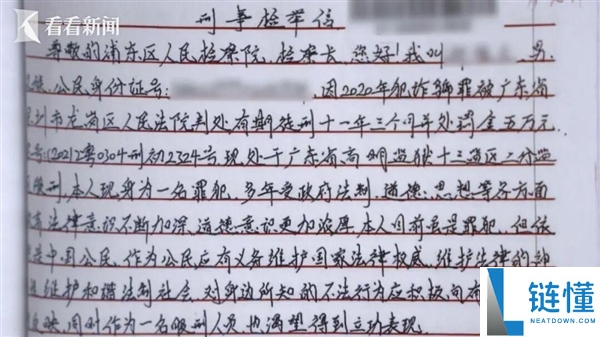 看看新闻
刑事检举信
尊敬的浦东区人民检察院,检察长,您好!我叫 男,
公民身份证号: 因2020年犯诈骗罪被广东省
圳市龙岗区人民法院判处有期徒刑十一年三个月并处罚金五万元
号:(2021)粤0304刑初2324号,现处于广东省高明监狱十三监区二分监
服刑,本人现身为一名罪犯,多年受政府法制、道德、思想等各方面
法律意识不断加深,道德意识更加浓厚,本人目前虽是罪犯,但依
是中国公民,作为公民应有义务维护国家法律权威,维护法律的
维护和谐法制社会,对身边所知的不法行为应积极向有
反映,同时作为一名服刑人员也渴望得到立功表现.
链懂
NEATDOWN.COM